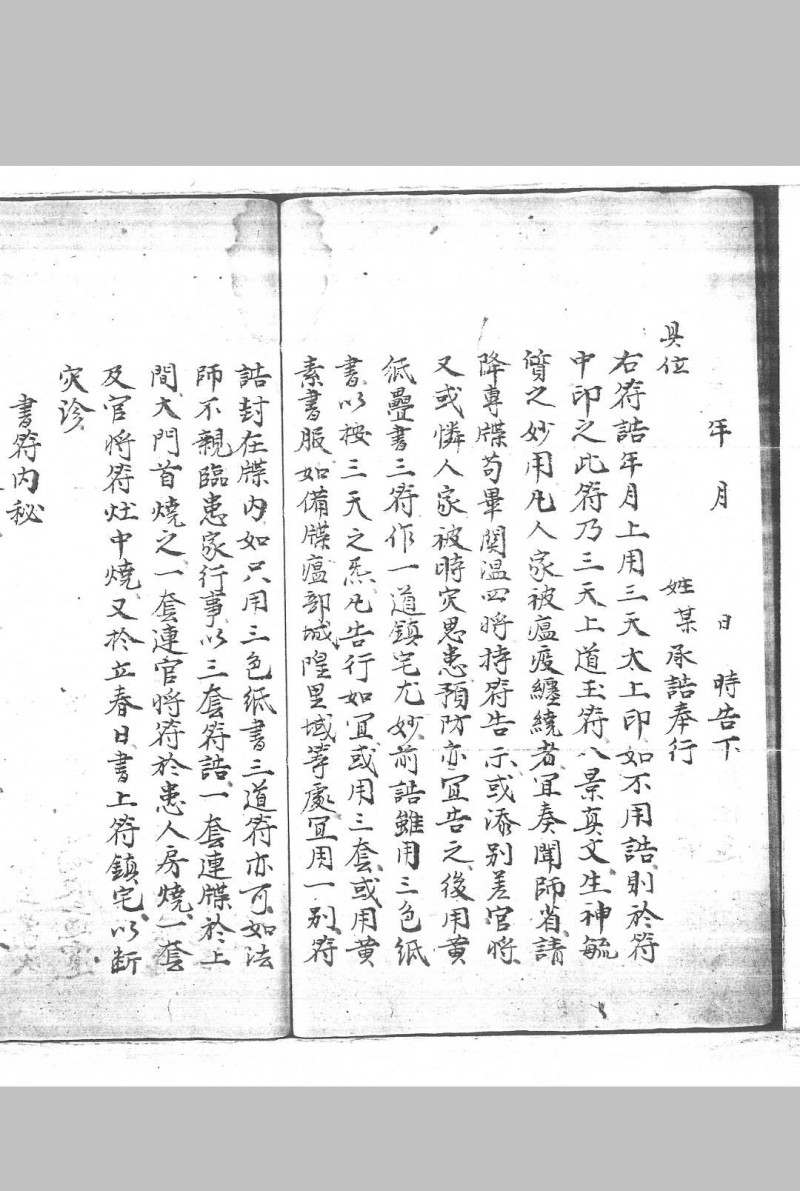 年　月　　日　時告下
具位　　　　姓某承誥奉行
右符誥年月上用三天太上印如不用誥則於符
中印之此符乃三天上道玉符八景真文生神毓
質之妙用凡人家被瘟疫纏繞者宜奏聞師省請
降專牒苟畢関温四將持符告示或添别差官將
又或憐人家被時灾思患預防亦宜告之後用黄
纸疊書三符作一道鎮宅尤妙前誥雖用三色纸
書以按三天之炁凡告行如宜或用三套或用黄
素書服如備牒瘟部城隍里域等處宜用一别符
誥封在牒内如只用三色紙書三道符亦可如法
師不親臨患家行事以三套符誥一套連牒於上
間大門首燒之一套連官將符於患人房燒一套
及官將符灶中燒又於立春日書上符鎮宅以断
灾诊
書符内秘